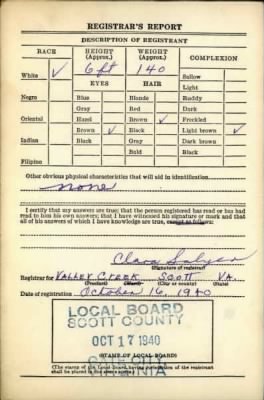 REGISTRAR'S REPORT
DESCRIPTION OF REGISTRANT
RACE HEIGHT (Approx.) WEIGHT (Approx.) COMPLEXION
6 ft 140
White ✓ Sallow
EYES HAIR Light
Negro Blue Blonde Ruddy
Gray Red Dark
Oriental Hazel Brown ✓ Freckled
Brown ✓ Black Light brown ✓
Indian Black Gray Dark brown
Bald Black
Filipino
Other obvious physical characteristics that will aid in identification
none
I certify that my answers are true; that the person registered has read or has had
read to him his own answers; that I have witnessed his signature or mark and that
all of his answers of which I have knowledge are true, except as follows:
Clara
(Signature of registrar)
Registrar for VALLEY CREEK SCOTT VA.
(Precinct) (Ward) (City or county) (State)
Date of registration October 16, 1940
LOCAL BOARD
SCOTT COUNTY
OCT 17 1940
GATE CITY,
VIRGINIA
(STAMP OF LOCAL BOARD)
(The stamp of the Local Board having jurisdiction of the registrant
shall be placed in the above space.)